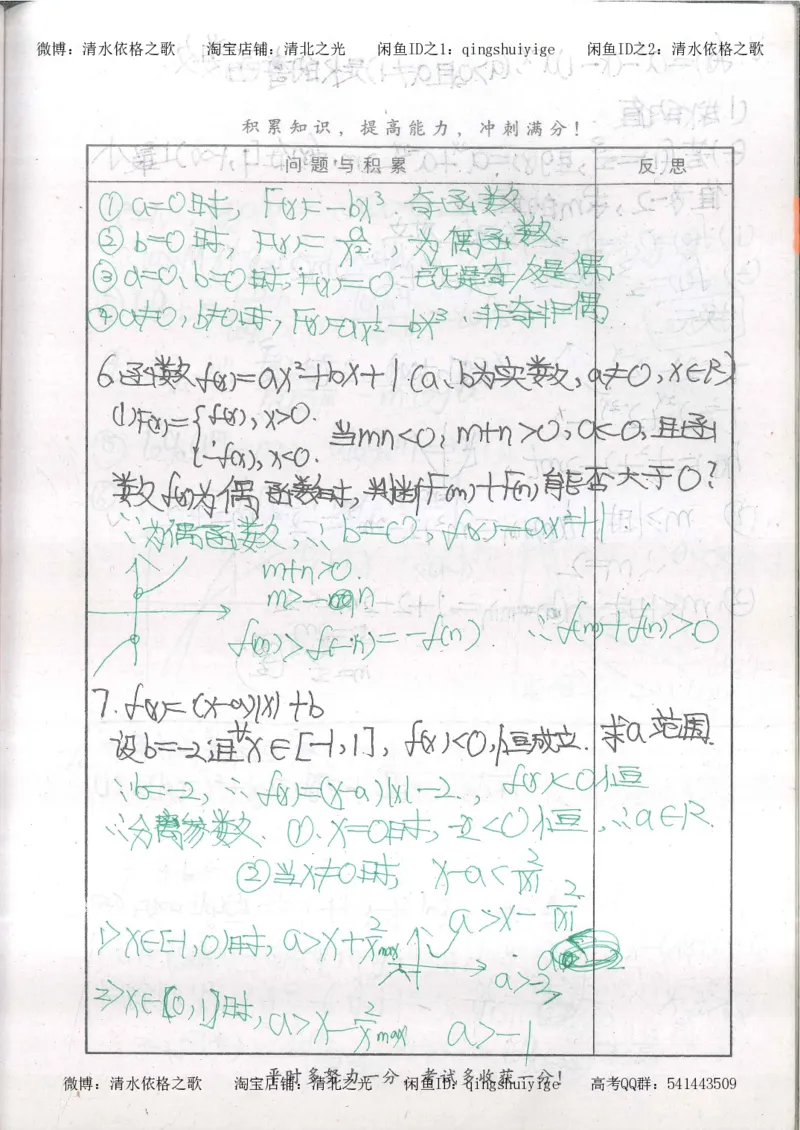 微博：清水依格之歌 淘宝店铺：清北之光 闲鱼ID之1：qingshuiyige 闲鱼ID之2：清水依格之歌
积累知识，提高能力，冲刺满分！
问题与积累 反思
① a=0时, F(x)=-bx³ 奇函数
② b=0时, F(x)=a/x² 为偶函数
③ a=0、b=0时, F(x)=0 既是奇/又是偶
④ a≠0, b≠0时, F(x)=ax²-bx³ 非奇非偶
6.函数f(x)=ax²+bx+1(a、b为实数,a≠0,x∈R)
(1)F(x)={f(x),x>0.
{-f(x),x<0.
当mn<0, m+n>0, a<0, 且函
数f(x)为偶函数时,判断F(m)+F(n)能否大于0?
∵为偶函数∴ b=0, f(x)=ax²+1
m+n>0.
m>-n
f(m)>f(-n)=-f(n) ∴f(m)+f(n)>0
7.f(x)=(x-a)|x|+b
设b=-2,且 x∈[-1,1], f(x)<0,恒成立.求a范围.
∵b=-2,∴f(x)=(x-a)|x|-2., f(x)<0恒
∴分离参数. ①.x=0时,-2<0恒,∴a∈R.
②当x≠0时, x-a<2/|x|
a>x-2/|x|
1>x∈[-1,0)时, a>x+2/x max
a>-3
2>x∈(0,1]时, a>x-2/x max a>-1
平时多努力一分，考试多收获一分！
微博：清水依格之歌 淘宝店铺：清北之光 闲鱼ID：qingshuiyige 高考QQ群：541443509